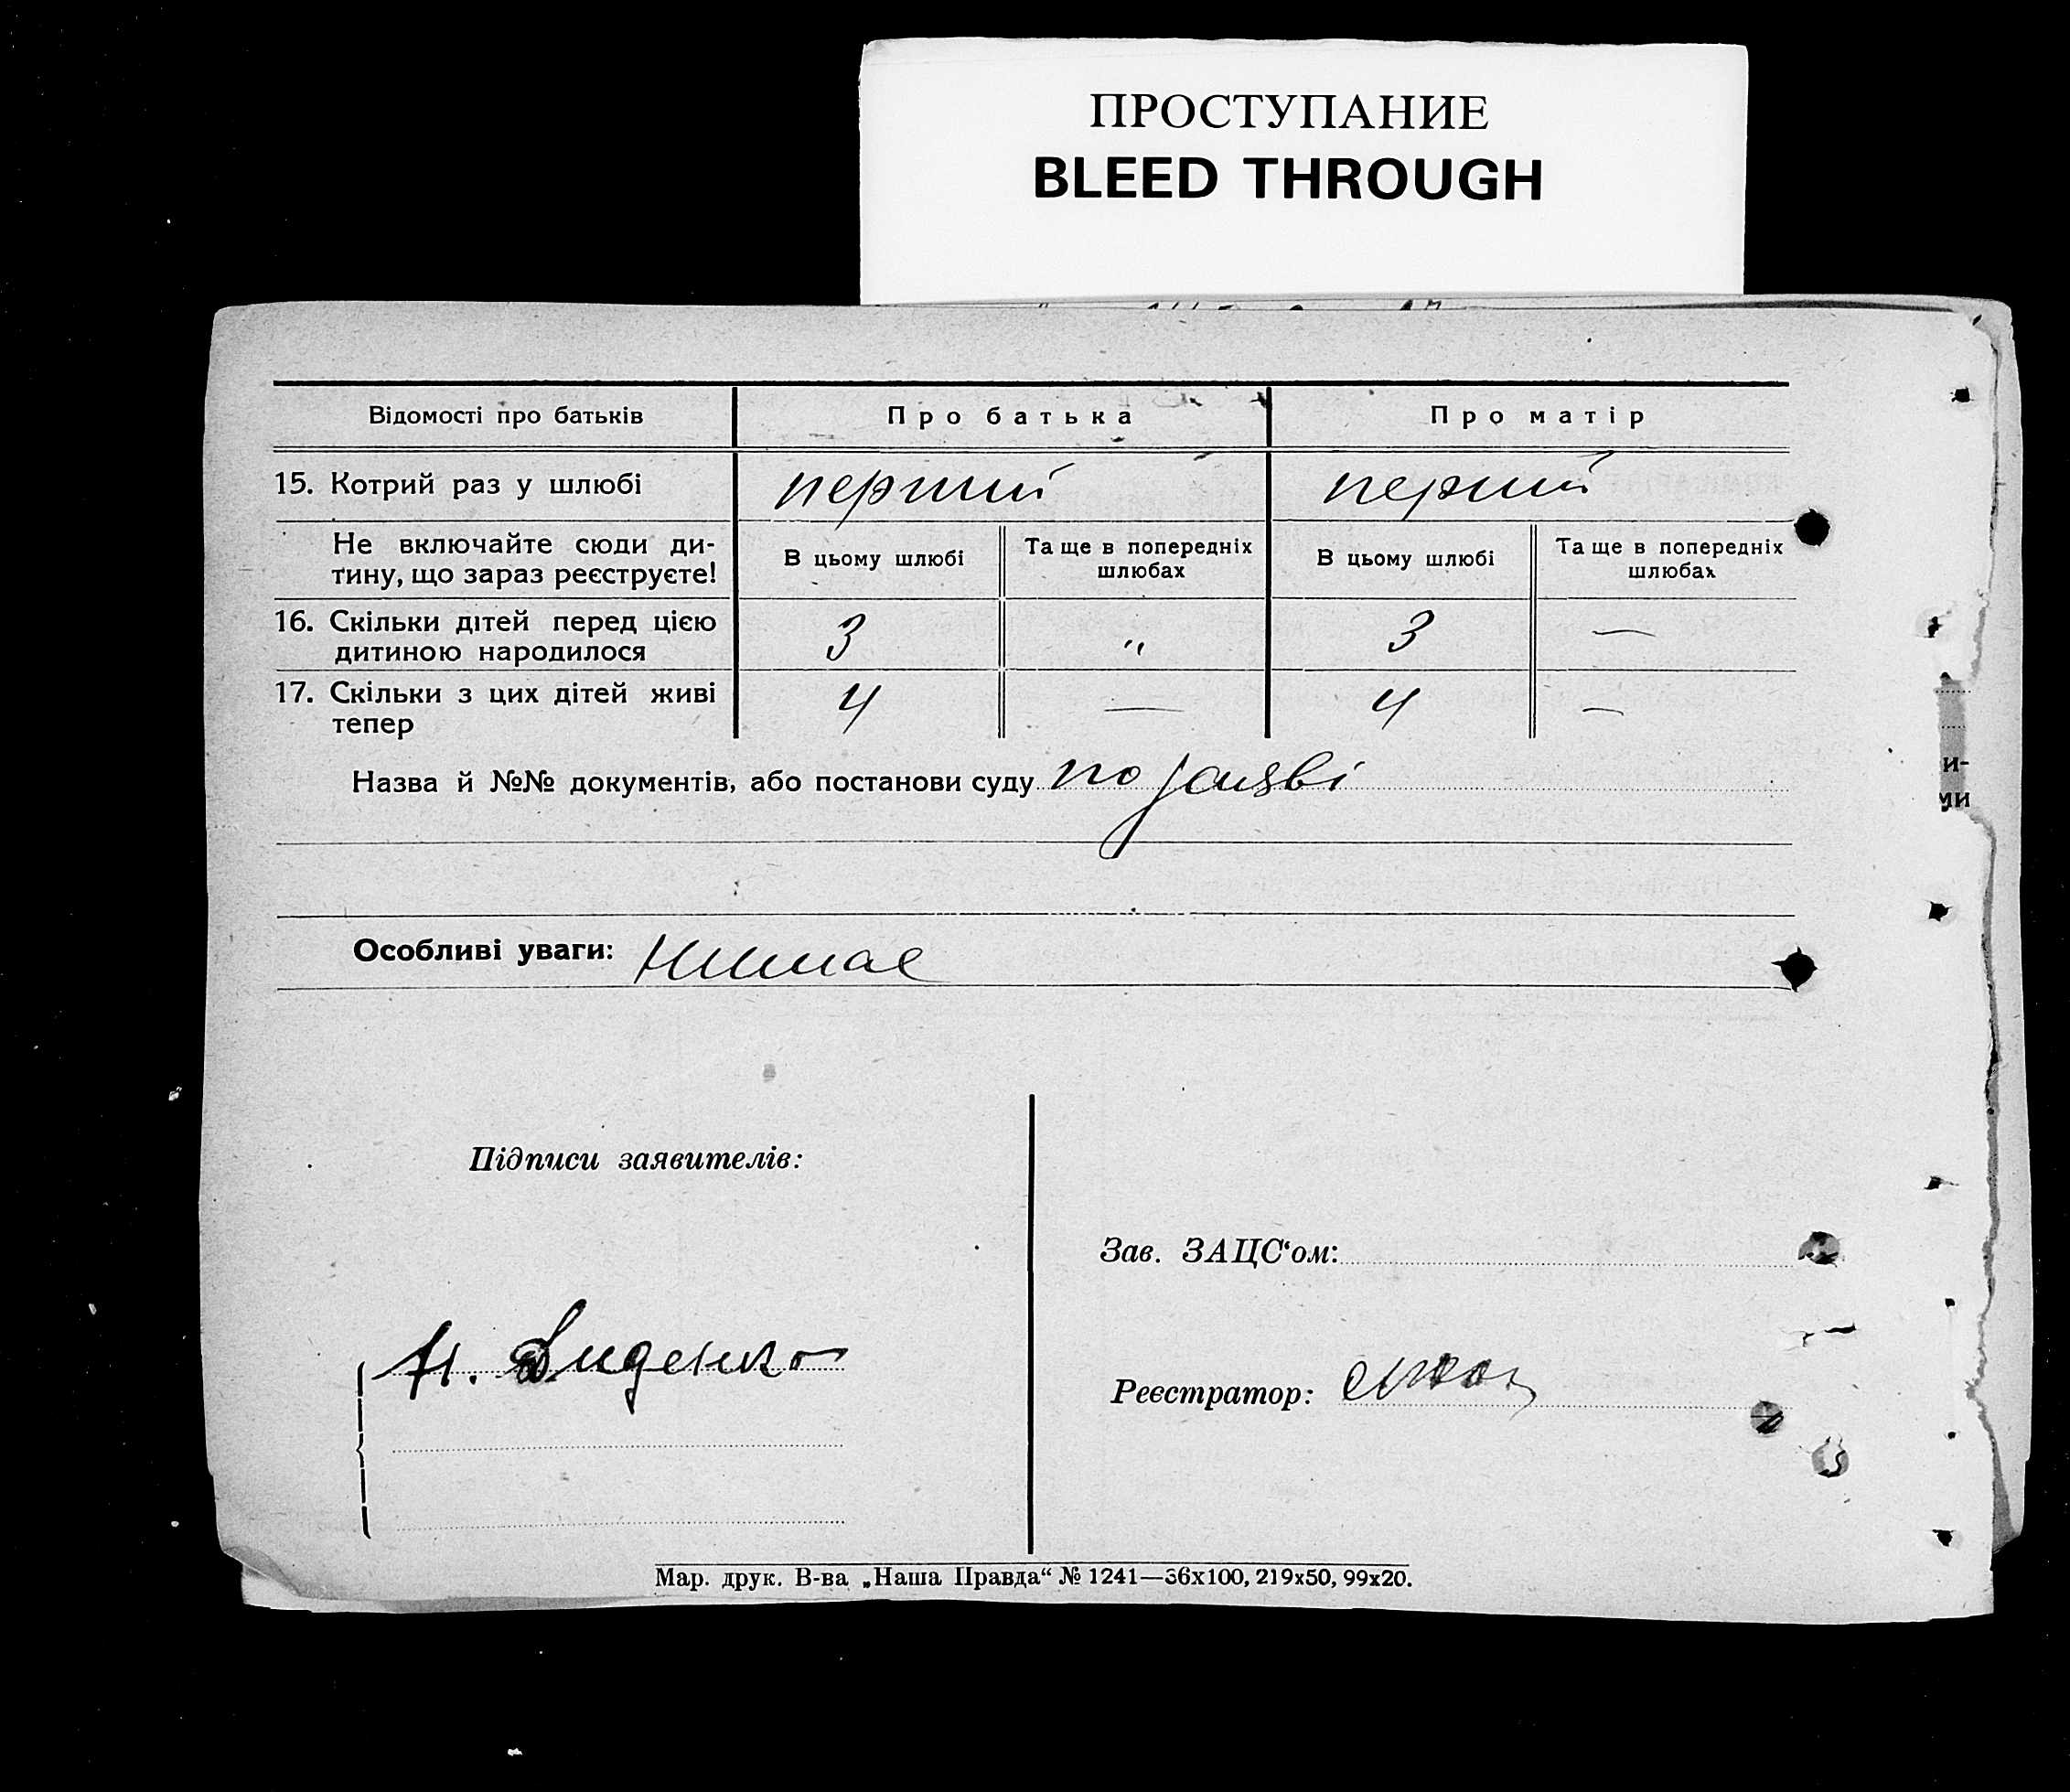 ПРОСТУПАНИЕ
BLEED THROUGH
Відомості про батьків Про батька Про матір
15. Котрий раз у шлюбі перший перший
Не включайте сюди ди-
тину, що зараз реєструєте! В цьому шлюбі Та ще в попередніх шлюбах В цьому шлюбі Та ще в попередніх шлюбах
16. Скільки дітей перед цією
дитиною народилося 3 „ 3 —
17. Скільки з цих дітей живі
тепер 4 — 4 —
Назва й №№ документів, або постанови суду по заяві
и-
ми
Особливі уваги: Нимає
Підписи заявителів:
Зав. ЗАЦС‘ом:
Н. Диденко
Реєстратор:
Мар. друк. В-ва „Наша Правда“ № 1241—36х100, 219х50, 99х20.